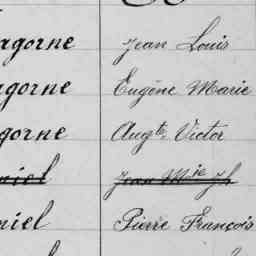 agorne Jean Louis
agorne Eugène Marie
gorne Augte Victor
niel Jean Mie Jh
niel Pierre François